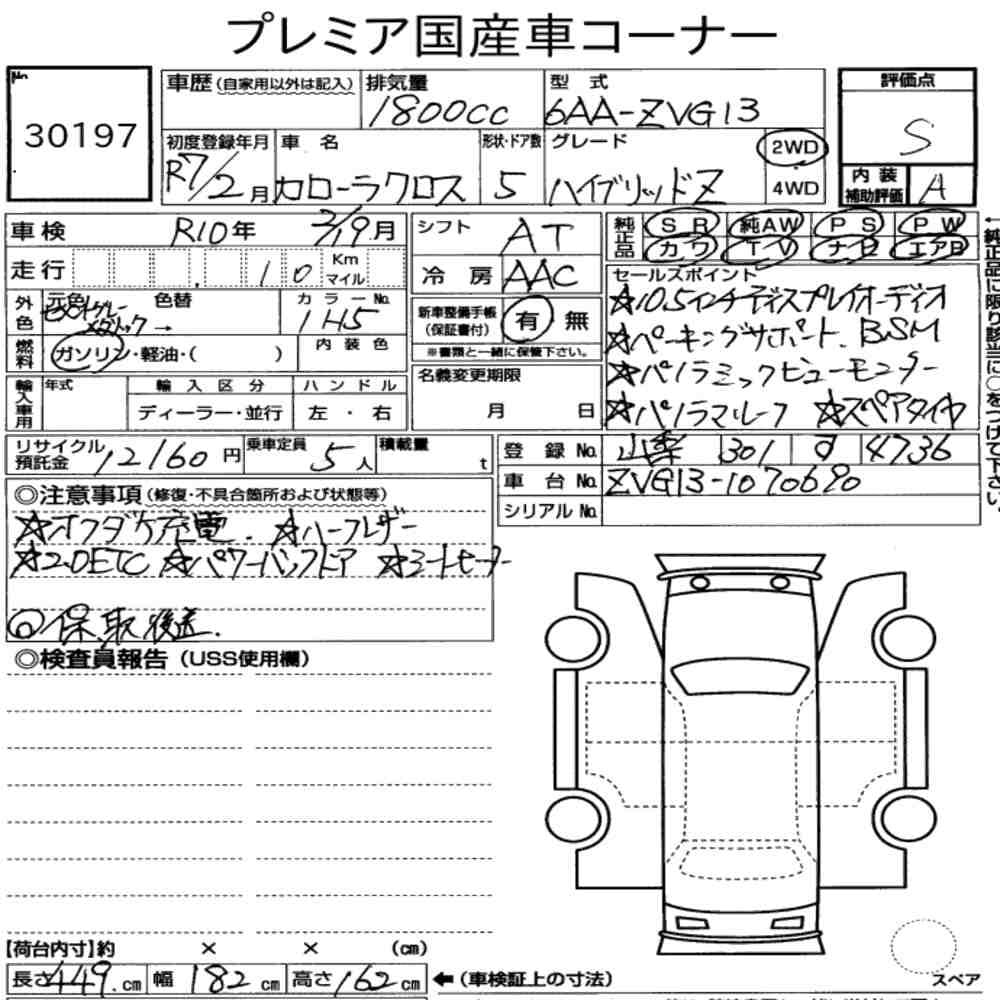 プレミア国産車コーナー
No.
30197
車歴(自家用以外は記入)
排気量
1800cc
型 式
6AA-ZVG13
評価点
S
内装補助評価 A
初度登録年月
R7/2月
車 名
カローラクロス
形状・ドア数
5
グレード
ハイブリッドZ
2WD
4WD
車検 R10年 2/19月
走行 10 Km マイル
シフト AT
冷房 AAC
純正品 SR 純AW PS PW
カワ TV ナビ エアB
外色 元色 メタリック → 色替
カラーNo.
1H5
燃料 ガソリン・軽油・( )
内装色
新車整備手帳(保証書付) 有 無
※書類と一緒に保管下さい。
セールスポイント
☆10.5インチディスプレイオーディオ
☆パーキングサポート. BSM
☆パノラミックビューモニター
☆パノラマルーフ ☆スペアタイヤ
輸入車用 年式 輸入区分 ハンドル
ディーラー・並行 左・右
名義変更期限
月 日
リサイクル預託金 12160円
乗車定員 5人
積載量 t
登録No. 301 す 4736
車台No. ZVG13-1070690
シリアルNo.
◎注意事項(修復・不具合箇所および状態等)
☆オクダケ充電. ☆ハーフレザー
☆2.0ETC ☆パワーバックドア ☆シートヒーター
◎保.取後送.
◎検査員報告(USS使用欄)
【荷台内寸】約 × × (cm)
長さ 449.cm 幅 182cm 高さ 162cm ←(車検証上の寸法)
スペア
←純正品に限り該当に○をつけて下さい。